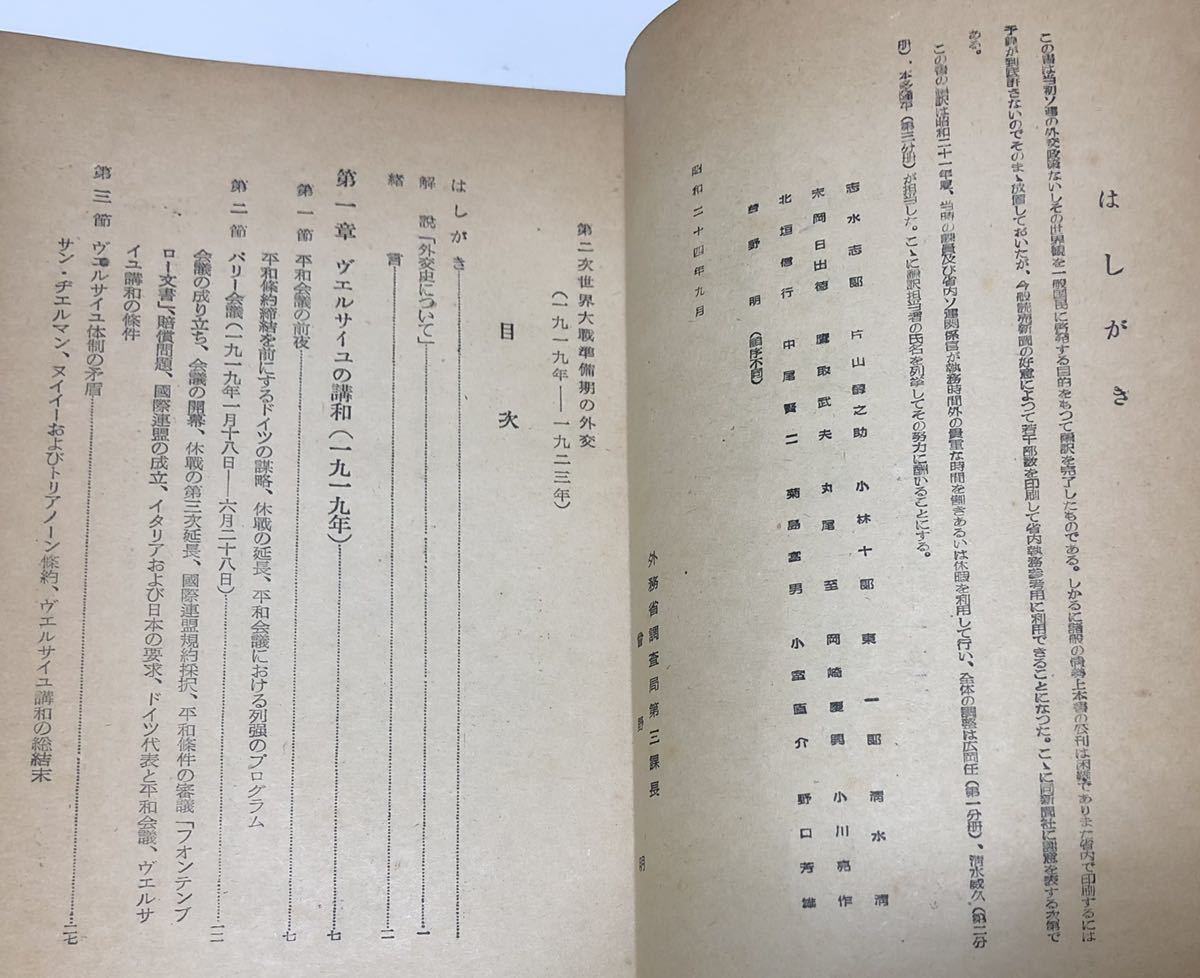 はしがき
この書は当初ソ連の外交政策ないしその世界観を一般国民に啓発する目的をもつて飜訳を完了したものである。しかるに諸般の情勢上本書の公刊は困難でありまた省内で印刷するには
予算が到底許さないのでそのまゝ放置しておいたが、今般読売新聞の好意によつて若干部数を印刷して省内執務参考用に利用できることになつた。こゝに同新聞社に謝意を表する次第で
ある。
この書の飜訳は昭和二十一年夏、当時の課員及び省内ソ連関係官が執務時間外の貴重な時間を割きあるいは休暇を利用して行い、全体の調整は広岡任(第一分冊)、清水威久(第二分
冊)、本多(第三分冊)が担当した。こゝに飜訳担当者の氏名を列挙してその努力に酬いることにする。
志水志郎 片山醇之助 小林十郎 東一郎 清水清
岡日出徳 鷹取武夫 丸尾至 岡崎慶興 小川亮作
北垣信行 中尾賢二 菊島富男 小室直介 野口芳雄
曾野明 (順序不同)
昭和二十四年九月
外務省調査局第三課長
曾野明
第二次世界大戦準備期の外交
(一九一九年——一九二三年)
目次
はしがき
解説「外交史について」 一
緒言 二
第一章 ヴェルサイユの講和(一九一九年) 七
第一節 平和会議の前夜 七
平和條約締結を前にするドイツの謀略、休戦の延長、平和会議における列強のプログラム
第二節 パリー会議(一九一九年一月十八日——六月二十八日) 一二
会議の成り立ち、会議の開幕、休戦の第三次延長、國際連盟規約採択、平和條件の審議「フォンテンブ
ロー文書」、賠償問題、國際連盟の成立、イタリアおよび日本の要求、ドイツ代表と平和会議、ヴェルサ
イユ講和の條件
第三節 ヴェルサイユ体制の矛盾 二七
サン・ヂェルマン、ヌイイーおよびトリアノーン條約、ヴェルサイユ講和の総結末